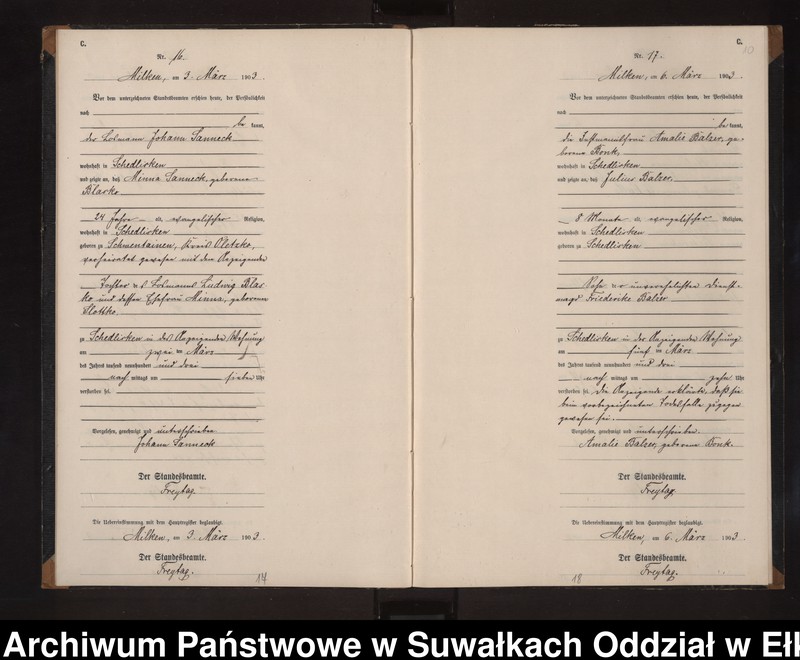 C.
Nr. 16.
Milken, am 3. März 1903.
Vor dem unterzeichneten Standesbeamten erschien heute, der Persönlichkeit
nach
be kannt,
der Losmann Johann Sanneck
wohnhaft in Schedlisken
und zeigte an, daß Minna Sanneck, geborene
Blarko
24 Jahre alt, evangelischer Religion,
wohnhaft in Schedlisken
geboren zu Schwentainen, Kreis Oletzko,
verheiratet gewesen mit dem Anzeigenden
Tochter des Losmanns Ludwig Blar-
ko und dessen Ehefrau Minna, geborenen
zu Schedlisken in des Anzeigenden Wohnung
am zwei ten März
des Jahres tausend neunhundert und drei
nach mittags um sieben Uhr
verstorben sei.
Vorgelesen, genehmigt und unterschrieben
Johann Sanneck
Der Standesbeamte.
Freytag.
Die Uebereinstimmung mit dem Hauptregister beglaubigt.
Milken, am 3. März 1903.
Der Standesbeamte.
Freytag.
17
C.
10
Nr. 17.
Milken, am 6. März 1903.
Vor dem unterzeichneten Standesbeamten erschien heute, der Persönlichkeit
nach
be kannt,
die Instmannsfrau Amalie Balzer, ge-
borene Konk,
wohnhaft in Schedlisken
und zeigte an, daß Julius Balzer
8 Monate alt, evangelischer Religion,
wohnhaft in Schedlisken
geboren zu Schedlisken
Sohn der unverehelichten Dienst-
magd Friederike Balzer
zu Schedlisken in der Anzeigenden Wohnung
am fünf ten März
des Jahres tausend neunhundert und drei
nach mittags um zehn Uhr
verstorben sei. Die Anzeigende erklärte, daß sie
beim vorbezeichneten Todesfalle zugegen
gewesen sei.
Vorgelesen, genehmigt und unterschrieben.
Amalie Balzer, geborene Konk.
Der Standesbeamte.
Freytag
Die Uebereinstimmung mit dem Hauptregister beglaubigt.
Milken, am 6. März 1903.
Der Standesbeamte.
Freytag.
18
Archiwum Państwowe w Suwałkach Oddział w Ełk